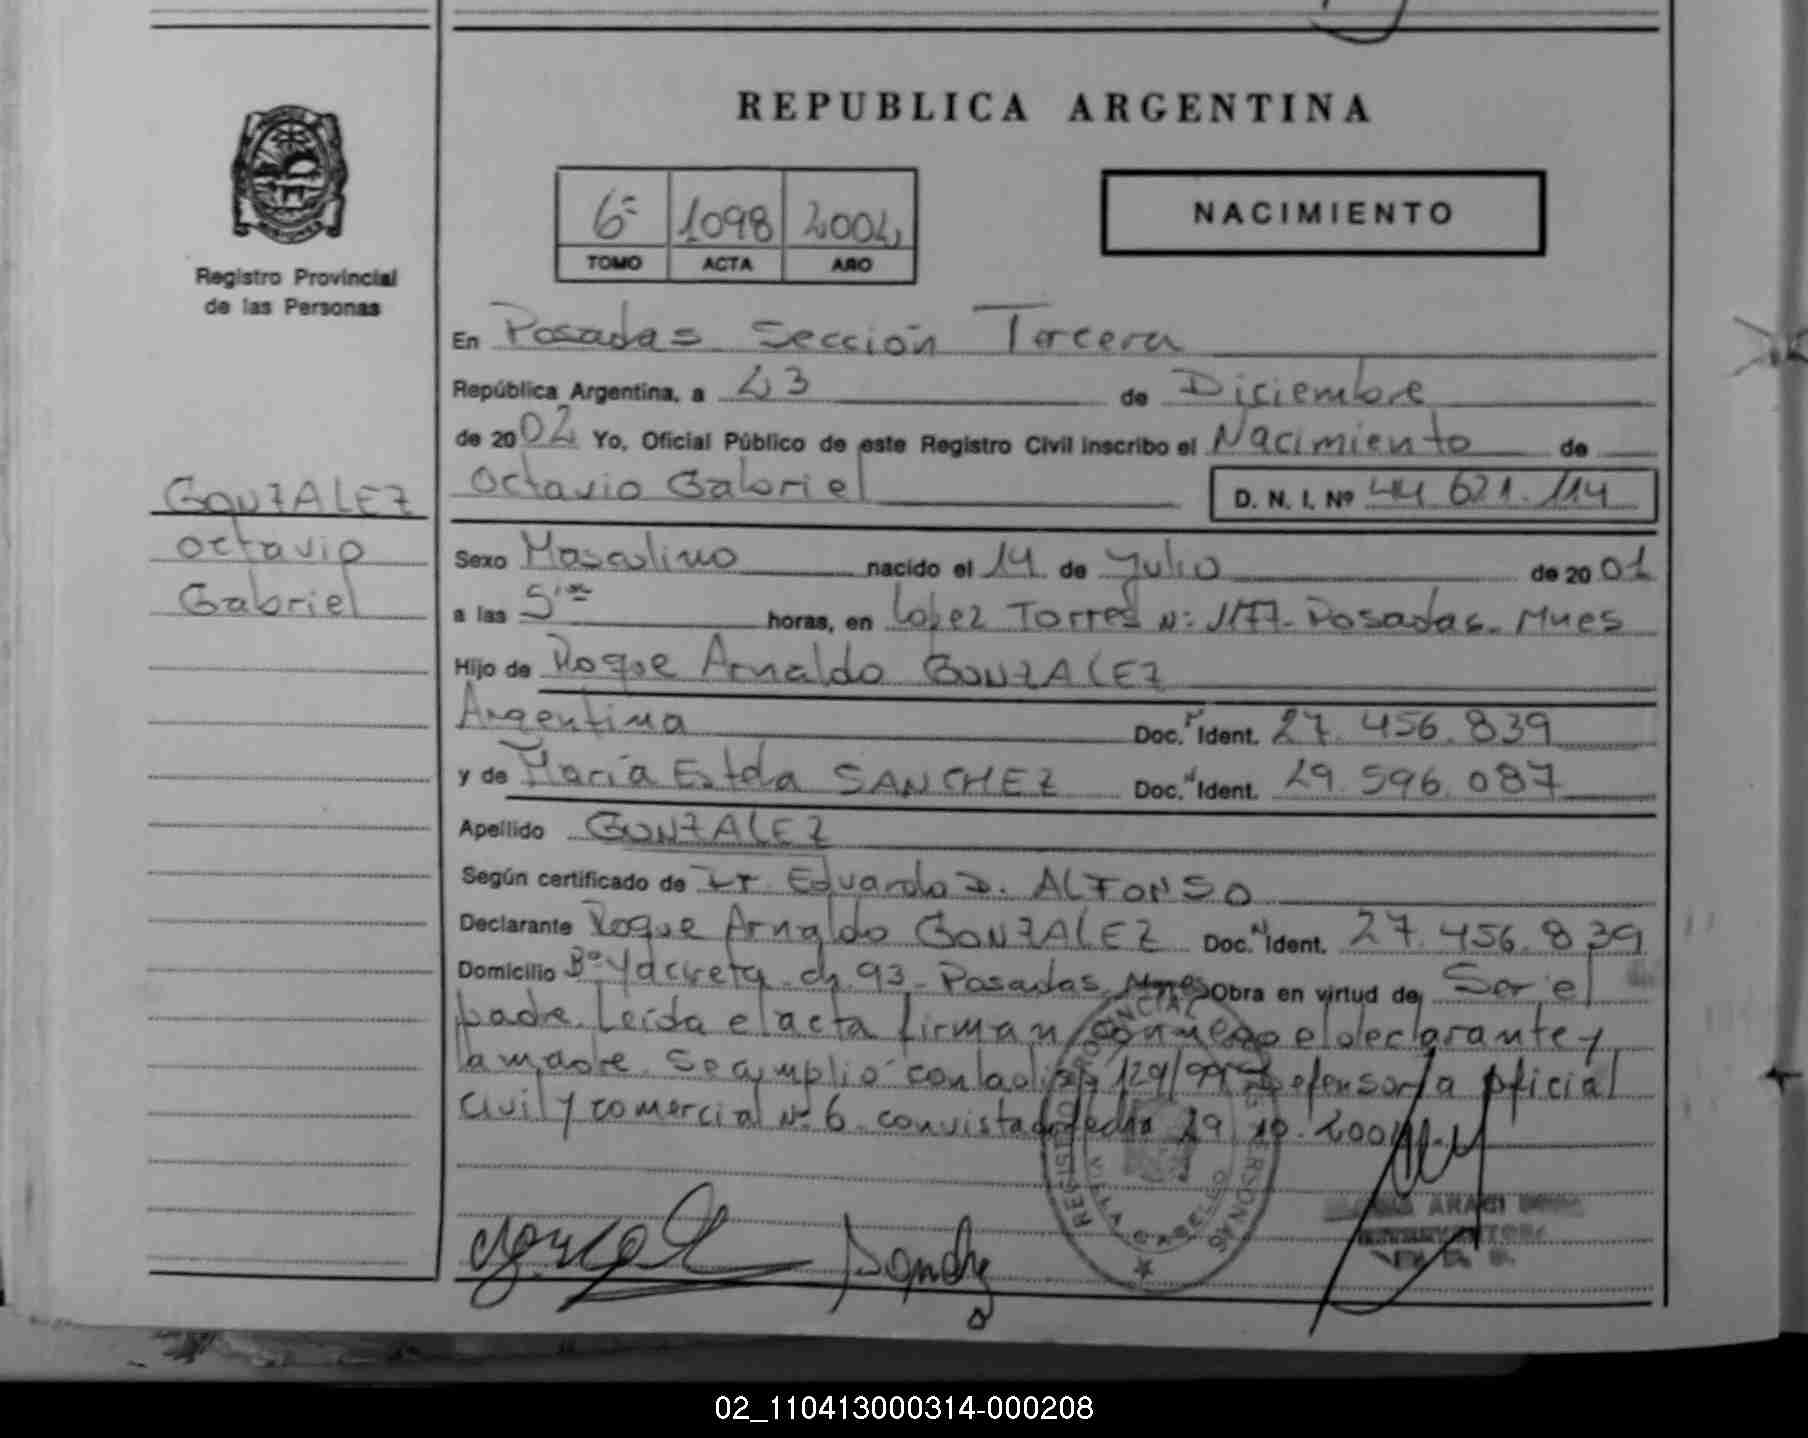 REPUBLICA ARGENTINA
6º 1098 2002
TOMO ACTA AÑO
NACIMIENTO
Registro Provincial
de las Personas
En Posadas Sección Tercera
República Argentina, a 23 de Diciembre
de 2002 Yo, Oficial Público de este Registro Civil inscribo el Nacimiento de
Octavio Gabriel D. N. I. Nº 44 621.114
GONZALEZ
Octavio
Gabriel
Sexo Masculino nacido el 14 de Julio de 2001
a las horas, en Lopez Torres Nº 1177 - Posadas - Mnes
Hijo de Roque Arnaldo GONZALEZ
Argentina Doc. Ident. 27.456.839
y de María Estela SANCHEZ Doc. Ident. 29.596.087
Apellido GONZALEZ
Según certificado de Dr. Eduardo D. ALFONSO
Declarante Roque Arnaldo GONZALEZ Doc. Ident. 27.456.839
Domicilio Bº Yacireta ch 93 - Posadas Mnes Obra en virtud de Ser el
padre. Leída el acta firman conmigo el declarante y
la madre. Se amplió con la 129/99 Defensoría oficial
civil y comercial Nº 6 con vista de fecha 29 10.2002
REGISTRO PROVINCIAL DE LAS PERSONAS
02_110413000314-000208